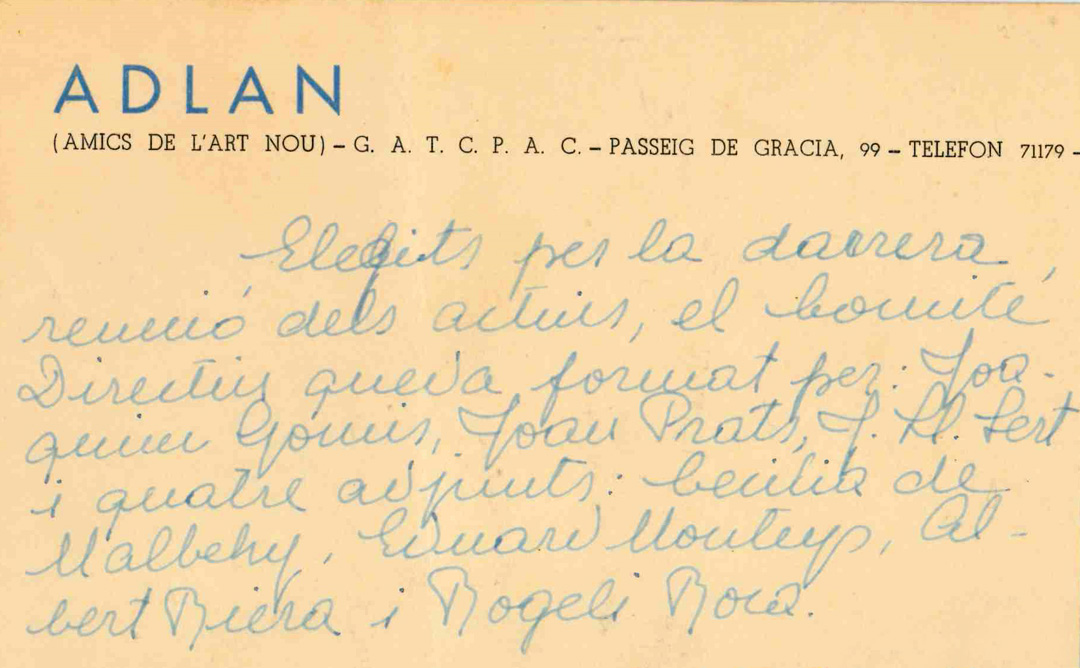 ADLAN
(AMICS DE L'ART NOU) – G. A. T. C. P. A. C. – PASSEIG DE GRACIA, 99 – TELEFON 71179 –
Elegits per la darrera
reunió dels actius, el Comité
Directiu queda format per: Joa-
quim Gomis, Joan Prats, J. Ll. Sert
i quatre adjunts: Cecilia de
Malbehy, Eduard Monteys, Al-
bert Riera i Rogeli Roca.